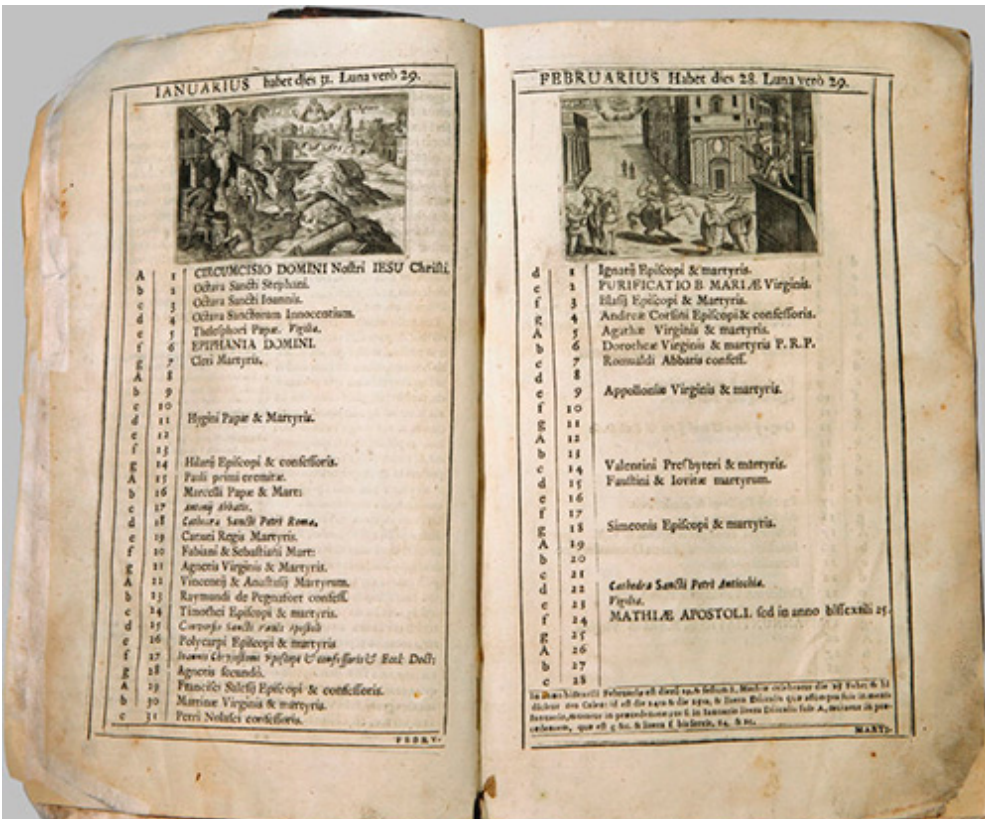 IANUARIUS habet dies 31. Luna verò 29.
A 1 CIRCUMCISIO DOMINI Nostri IESU Christi.
b 2 Octava Sancti Stephani.
c 3 Octava Sancti Ioannis.
d 4 Octava Sanctorum Innocentium.
e 5 Thelesphori Papæ. Vigilia.
f 6 EPIPHANIA DOMINI.
g 7 Cleri Martyris.
A 8
b 9
c 10
d 11 Hygini Papæ & Martyris.
e 12
f 13
g 14 Hilarij Episcopi & confessoris.
A 15 Pauli primi eremitæ.
b 16 Marcelli Papæ & Mart:
c 17 Antonij Abbatis.
d 18 Cathedra Sancti Petri Romæ.
e 19 Canuti Regis Martyris.
f 20 Fabiani & Sebastiani Mart:
g 21 Agnetis Virginis & Martyris.
A 22 Vincentij & Anastasij Martyrum.
b 23 Raymundi de Pegnafort confess.
c 24 Timothei Episcopi & martyris.
d 25 Conversio Sancti Pauli Apostoli
e 26 Polycarpi Episcopi & martyris
f 27 Ioannis Chrysostomi Episcopi & confessoris & Eccl: Doct:
g 28 Agnetis secundò.
A 29 Francisci Salesij Episcopi & confessoris.
b 30 Martinæ Virginis & martyris.
c 31 Petri Nolasci confessoris.
FEBRV-
FEBRUARIUS Habet dies 28. Luna verò 29.
d 1 Ignatij Episcopi & martyris.
e 2 PURIFICATIO B. MARIÆ Virginis.
f 3 Blasij Episcopi & Martyris.
g 4 Andreæ Corsini Episcopi & confessoris.
A 5 Agathæ Virginis & martyris.
b 6 Dorotheæ Virginis & martyris P. R. P.
c 7 Romualdi Abbatis confess.
d 8
e 9 Appolloniæ Virginis & martyris.
f 10
g 11
A 12
b 13
c 14 Valentini Presbyteri & martyris.
d 15 Faustini & Iovitæ martyrum.
e 16
f 17
g 18 Simeonis Episcopi & martyris.
A 19
b 20
c 21
d 22 Cathedra Sancti Petri Antiochiæ.
e 23 Vigilia.
f 24 MATHIÆ APOSTOLI. sed in anno bissextili 25.
g 25
A 26
b 27
c 28
MARTI-